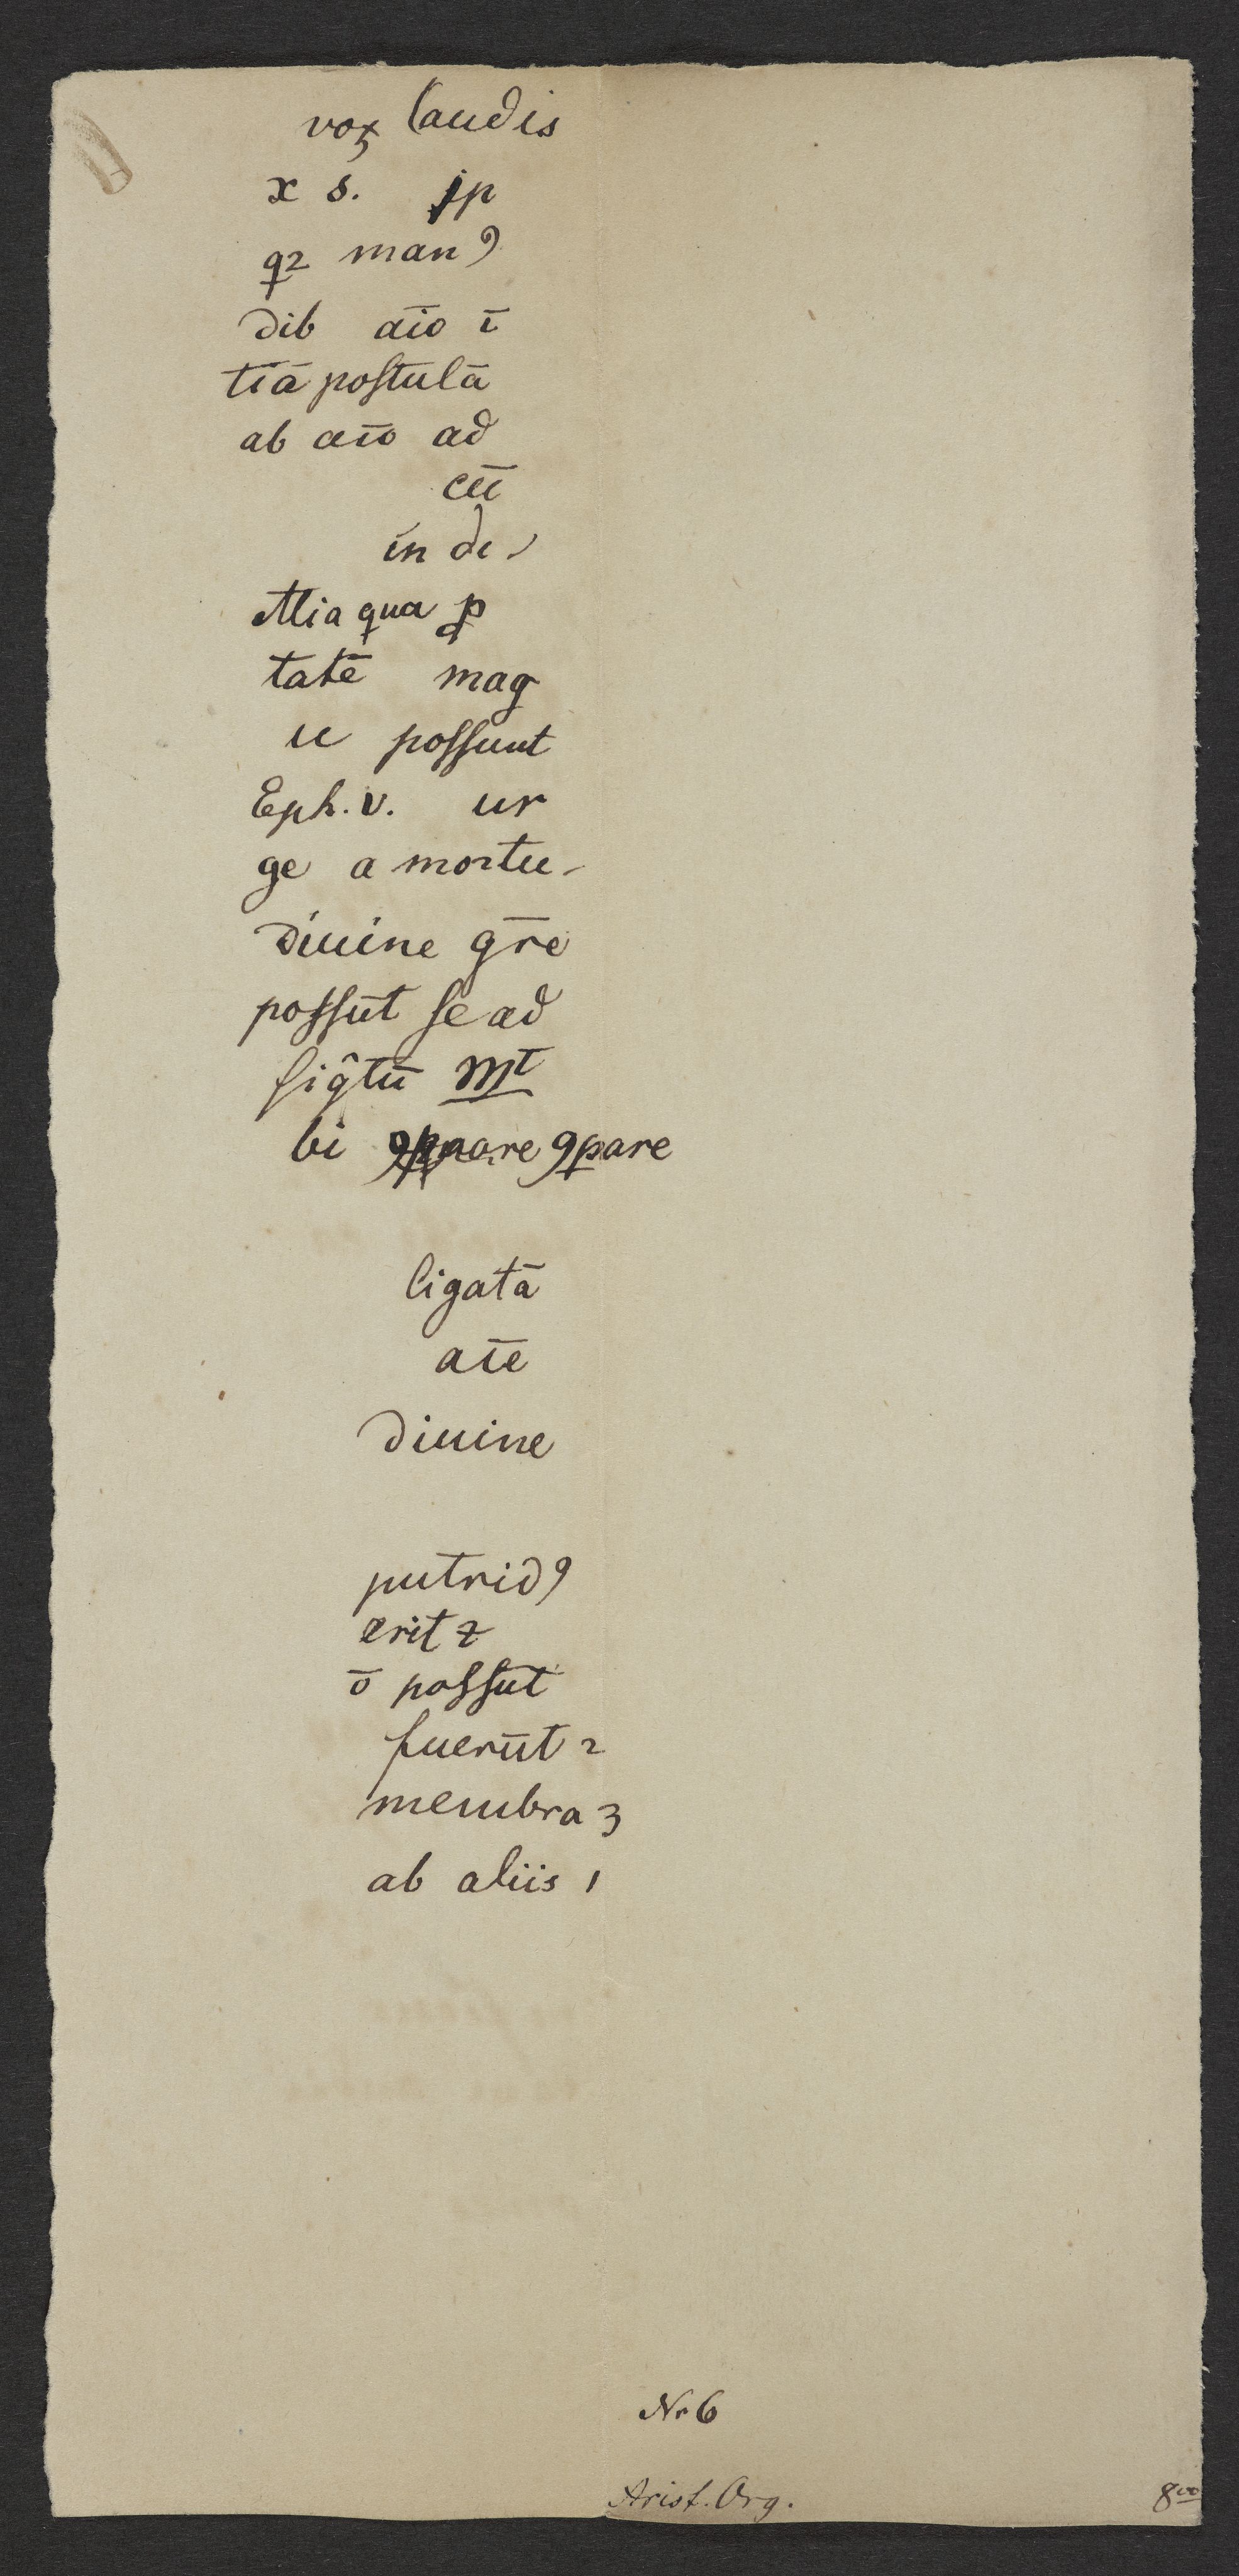 voꝝ laudis
x s. ip
qꝫ manꝰ
dib aīo ī
tiā poſtulā
ab aīo ad
cū
in di-
Alia qua ꝓ
tatē mag
u poſſunt
Eph. v. ur
ge a mortu-
diuine gr̄e
poſſūt ſe ad
ſiĝtū Mt
bi ꝯꝑare
ligatā
aīe
diuine
putridꝰ
erit 2
ō poſſūt
fuerūt 2
membra 3
ab aliis 1
Nr 6
Arist. Org.
8vo